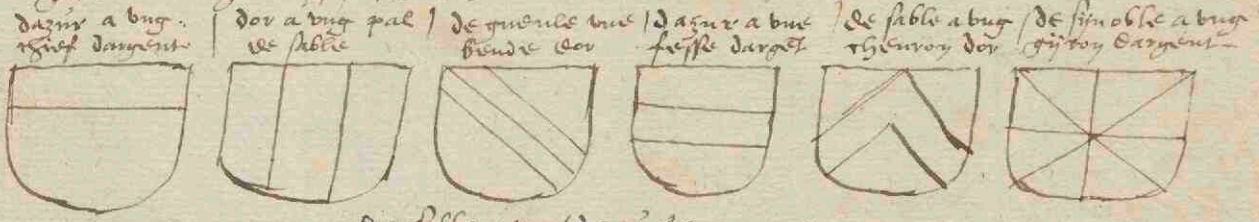 dazur a ung
chief dargent
dor a ung pal
de sable
de gueule une
bende dor
dazur a une
fesse darget
de sable a ung
chevron dor
de sijnoble a ung
gijron dargent